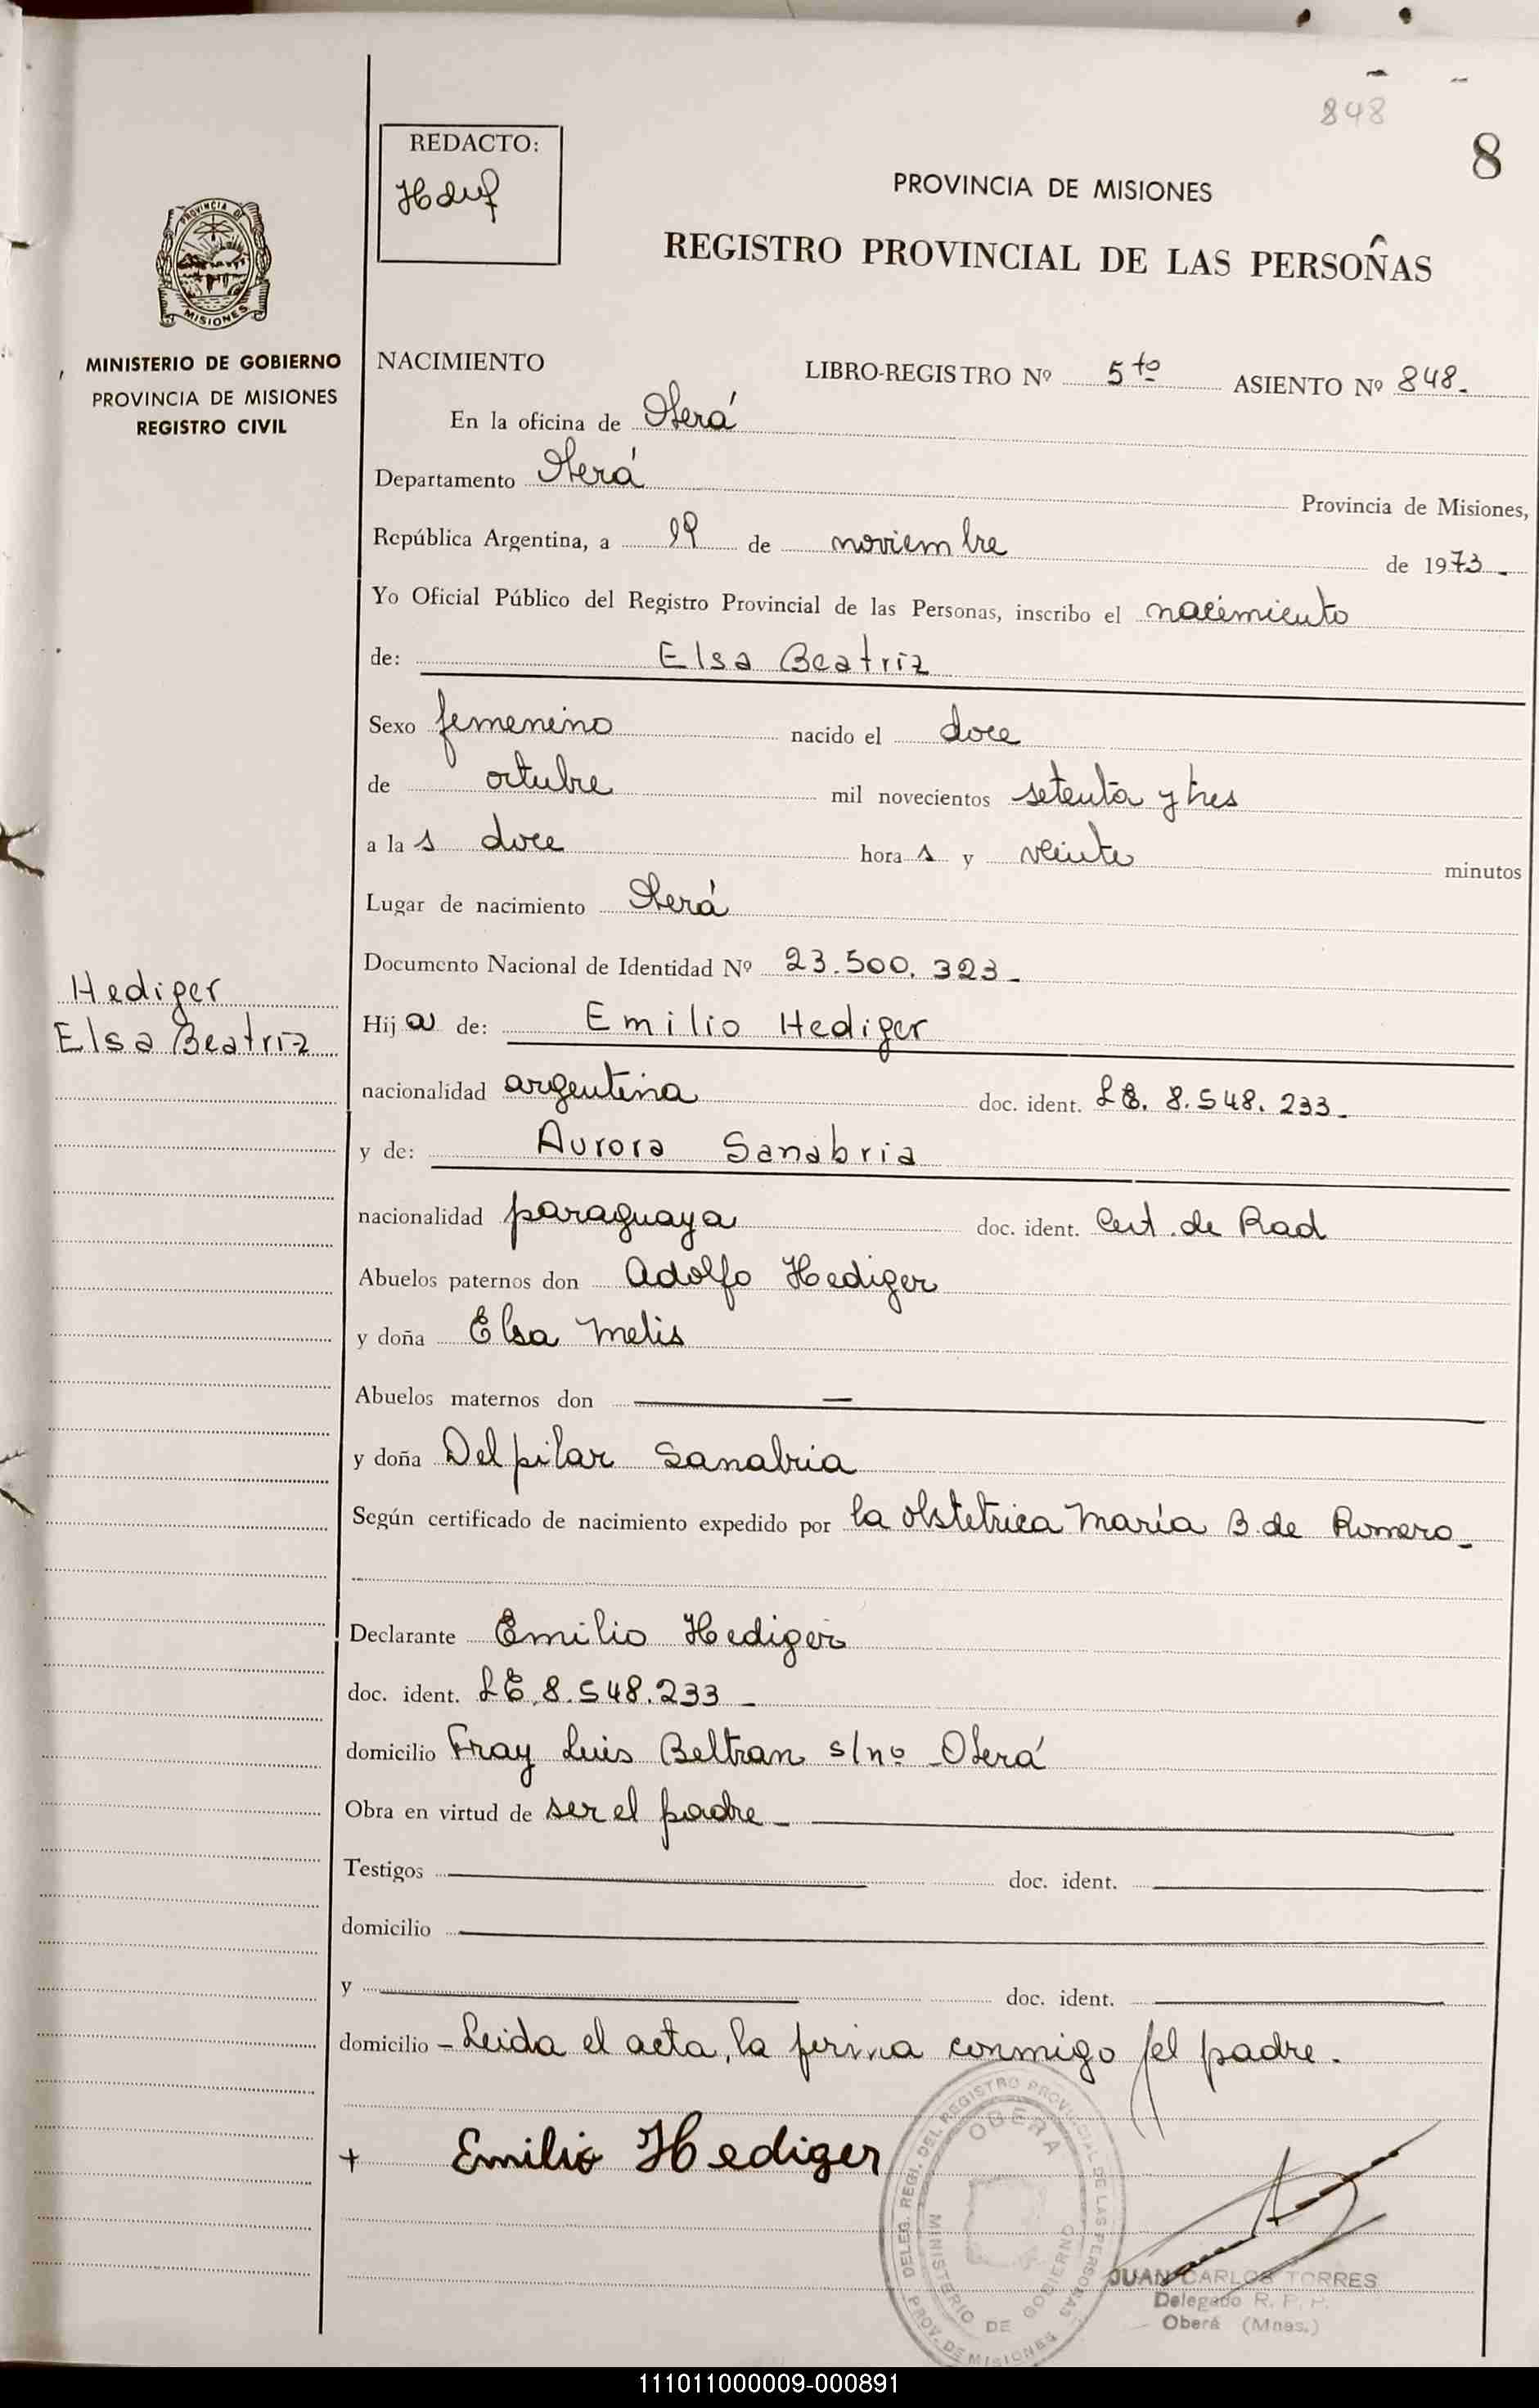 848
8
REDACTO:
PROVINCIA DE MISIONES
REGISTRO PROVINCIAL DE LAS PERSOÑAS
PROVINCIA DE
MISIONES
MINISTERIO DE GOBIERNO
PROVINCIA DE MISIONES
REGISTRO CIVIL
NACIMIENTO LIBRO-REGISTRO Nº 5to ASIENTO Nº 848.
En la oficina de Oberá
Departamento Oberá Provincia de Misiones,
República Argentina, a 19 de noviembre de 1973.
Yo Oficial Público del Registro Provincial de las Personas, inscribo el nacimiento
de: Elsa Beatriz
Sexo femenino nacido el doce
de octubre mil novecientos setenta y tres
a la s doce hora s y veinte minutos
Lugar de nacimiento Oberá
Documento Nacional de Identidad Nº 23.500.323-
Hediger
Elsa Beatriz
Hij a de: Emilio Hediger
nacionalidad argentina doc. ident. LE. 8.548.233-
y de: Aurora Sanabria
nacionalidad paraguaya doc. ident. Cert. de Rad
Abuelos paternos don Adolfo Hediger
y doña Elsa Melis
Abuelos maternos don —
y doña Del pilar Sanabria
Según certificado de nacimiento expedido por la obstetrica María B. de Romero-
Declarante Emilio Hediger
doc. ident. LE. 8.548.233-
domicilio Fray Luis Beltran s/nº Oberá
Obra en virtud de ser el padre-
Testigos doc. ident.
domicilio
y doc. ident.
domicilio - Leida el acta, la firma conmigo el padre.
+ Emilio Hediger
DELEG. REGI. DEL REGISTRO PROVINCIAL DE LAS PERSONAS
OBERA
MINISTERIO DE GOBIERNO
PROV. DE MISIONES
JUAN CARLOS TORRES
Delegado R. P. P.
Oberá (Mnes.)
111011000009-000891